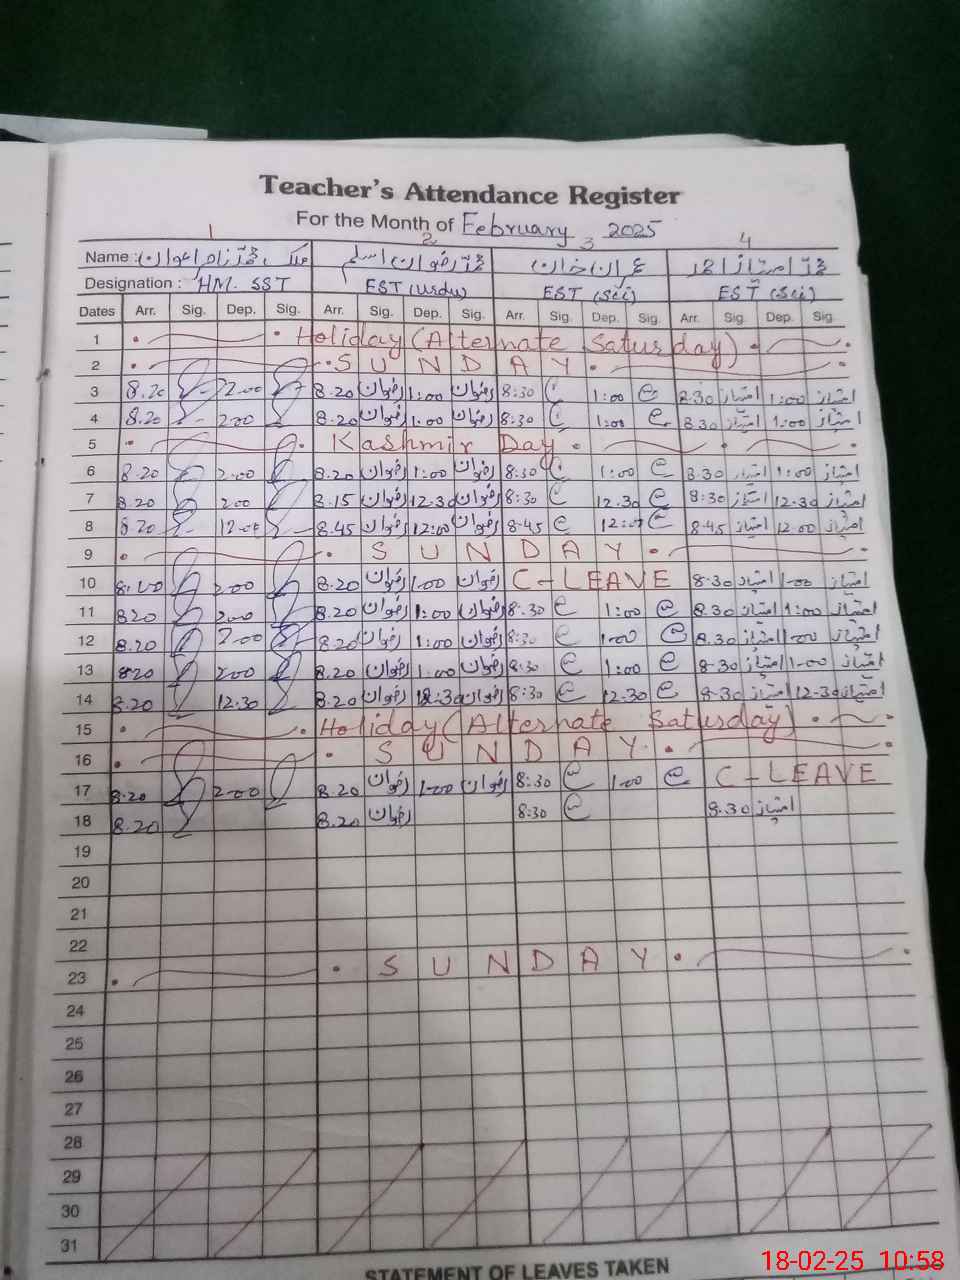 Teacher's Attendance Register
For the Month of February 2025
1 2 3 4
Name : محمد رضوان اسلم عمران خان محمد امتیاز احمد
Designation : HM. SST EST (Urdu) EST (Sci) EST (Sci)
Dates Arr. Sig. Dep. Sig. Arr. Sig. Dep. Sig. Arr. Sig. Dep. Sig. Arr. Sig. Dep. Sig.
1 Holiday (Alternate Saturday)
2 SUNDAY
3 8.20 2.00 8.20 رضوان 1:00 رضوان 8:30 1:00 8.30 امتیاز 1:00 امتیاز
4 8.20 2.00 8.20 رضوان 1.00 رضوان 8:30 1:00 8.30 امتیاز 1.00 امتیاز
5 Kashmir Day
6 8.20 2.00 8.20 رضوان 1:00 رضوان 8:30 1:00 8.30 امتیاز 1:00 امتیاز
7 8.20 2.00 8.15 رضوان 12.30 رضوان 8:30 12.30 8:30 امتیاز 12.30 امتیاز
8 8.20 12.00 8.45 رضوان 12:00 رضوان 8.45 12:00 8.45 امتیاز 12.00 امتیاز
9 SUNDAY
10 2.00 8.20 رضوان 1.00 رضوان C-LEAVE 8.30 امتیاز 1.00 امتیاز
11 8.20 2.00 8.20 رضوان 1:00 رضوان 8.30 1:00 8.30 امتیاز 1:00 امتیاز
12 8.20 2.00 8.20 رضوان 1:00 رضوان 8:30 1.00 8.30 امتیاز 1.00 امتیاز
13 8.20 2.00 8.20 رضوان 1.00 رضوان 8:30 1:00 8.30 امتیاز 1.00 امتیاز
14 8.20 12.30 8.20 رضوان 12.30 رضوان 8:30 12.30 8.30 امتیاز 12.30 امتیاز
15 Holiday (Alternate Saturday)
16 SUNDAY
17 8.20 2.00 8.20 رضوان 1.00 رضوان 8:30 1.00 C-LEAVE
18 8.20 8.20 رضوان 8:30 8.30 امتیاز
19
20
21
22
23 SUNDAY
24
25
26
27
28
29
30
31
STATEMENT OF LEAVES TAKEN
18-02-25 10:58